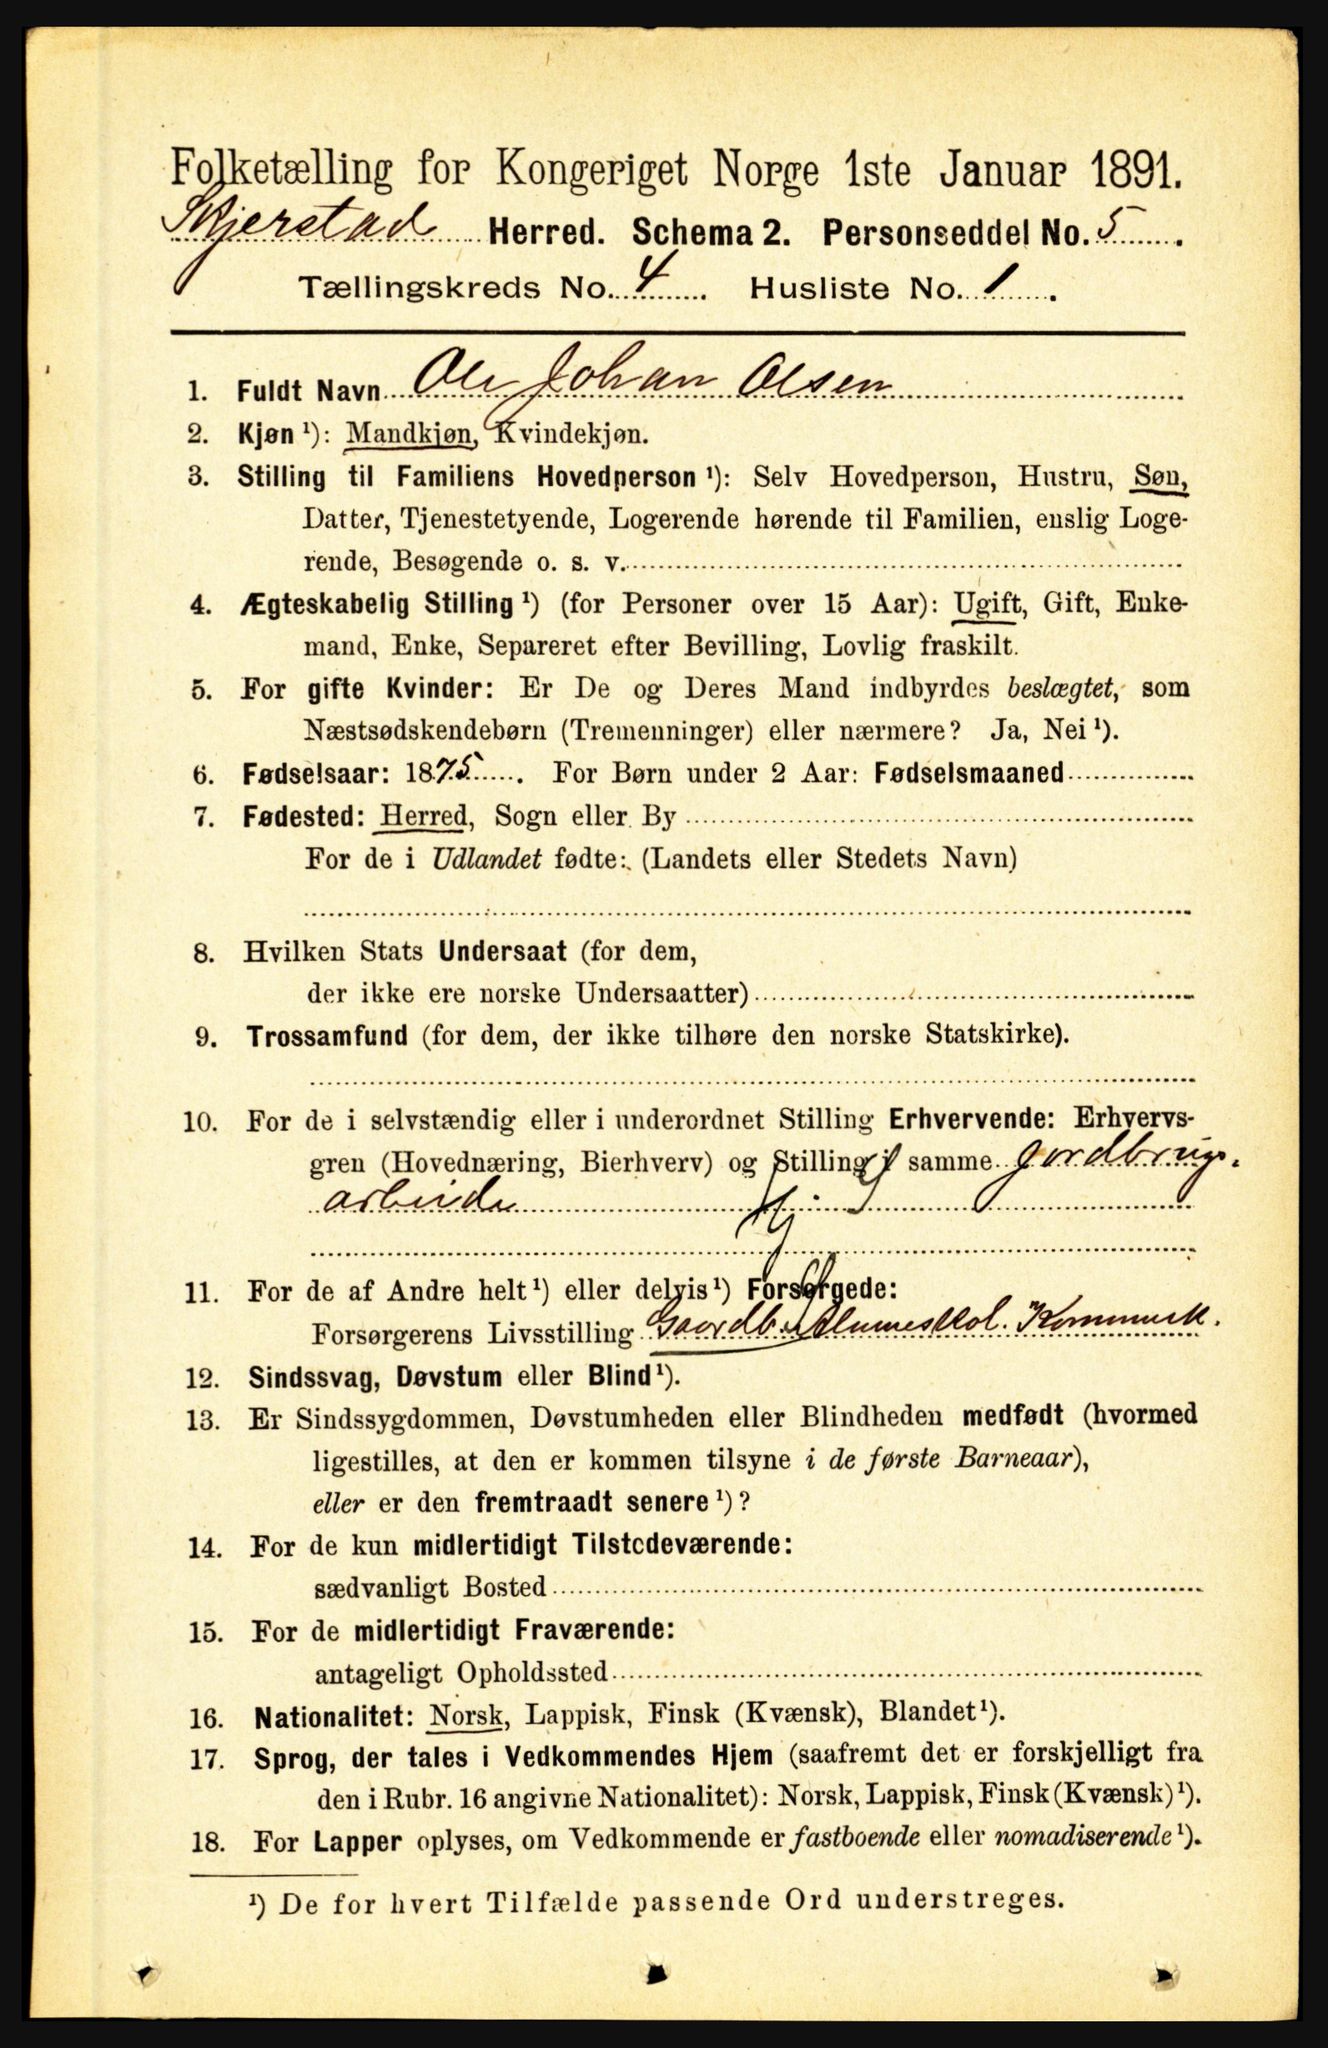 Folketælling for Kongeriget Norge 1ste Januar 1891.
Skjerstad Herred. Schema 2. Personseddel No. 5
Tællingskreds No. 4 Husliste No. 1
1. Fuldt Navn Ole Johan Olsen
2. Kjøn ¹): Mandkjøn, Kvindekjøn.
3. Stilling til Familiens Hovedperson ¹): Selv Hovedperson, Hustru, Søn,
Datter, Tjenestetyende, Logerende hørende til Familien, enslig Loge-
rende, Besøgende o. s. v.
4. Ægteskabelig Stilling ¹) (for Personer over 15 Aar): Ugift, Gift, Enke-
mand, Enke, Separeret efter Bevilling, Lovlig fraskilt.
5. For gifte Kvinder: Er De og Deres Mand indbyrdes beslægtet, som
Næstsødskendebørn (Tremenninger) eller nærmere? Ja, Nei ¹).
6. Fødselsaar: 1875. For Børn under 2 Aar: Fødselsmaaned
7. Fødested: Herred, Sogn eller By
For de i Udlandet fødte: (Landets eller Stedets Navn)
8. Hvilken Stats Undersaat (for dem,
der ikke ere norske Undersaatter)
9. Trossamfund (for dem, der ikke tilhøre den norske Statskirke).
10. For de i selvstændig eller i underordnet Stilling Erhvervende: Erhvervs-
gren (Hovednæring, Bierhverv) og Stilling i samme Jordbrugs-
arbeide
11. For de af Andre helt ¹) eller delvis ¹) Forsørgede:
Forsørgerens Livsstilling Gaardb.
12. Sindssvag, Døvstum eller Blind ¹).
13. Er Sindssygdommen, Døvstumheden eller Blindheden medfødt (hvormed
ligestilles, at den er kommen tilsyne i de første Barneaar),
eller er den fremtraadt senere ¹)?
14. For de kun midlertidigt Tilstedeværende:
sædvanligt Bosted
15. For de midlertidigt Fraværende:
antageligt Opholdssted
16. Nationalitet: Norsk, Lappisk, Finsk (Kvænsk), Blandet ¹).
17. Sprog, der tales i Vedkommendes Hjem (saafremt det er forskjelligt fra
den i Rubr. 16 angivne Nationalitet): Norsk, Lappisk, Finsk (Kvænsk) ¹).
18. For Lapper oplyses, om Vedkommende er fastboende eller nomadiserende ¹).
¹) De for hvert Tilfælde passende Ord understreges.